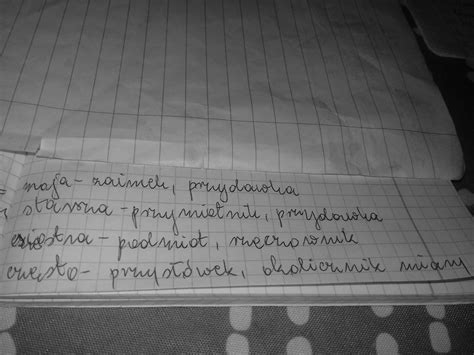 moja - zaimek, przydawka
starsza - przymiotnik, przydawka
siostra - podmiot, rzeczownik
często - przysłówek, okolicznik miary